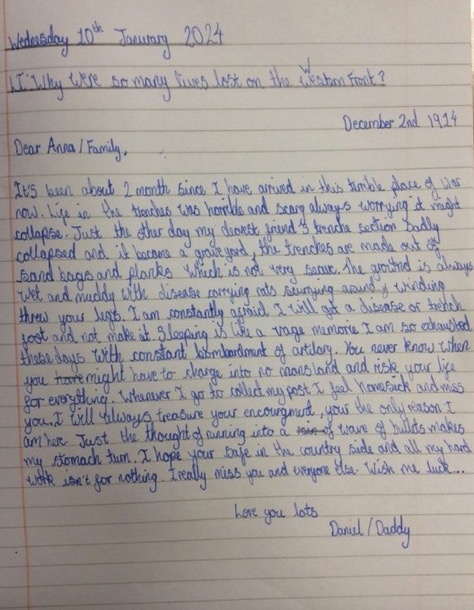 Wednesday 10th January 2024
LI: Why were so many lives lost on the Western Front?
December 2nd 1914
Dear Anna / Family,
It's been about 2 month since I have arrived in this terrible place of war
now. Life in the trenches was horrible and scary always worrying it might
collapse. Just the other day my dearest friend's trenche section badly
collapsed and it became a graveyard, the trenches are made out of
sand bags and planks which is not very secure. The ground is always
wet and muddy with disease carrying rats scurrying around winding
threw your legs. I am constantly afraid I will get a disease or trench
foot and not make it. Sleeping is like a vage memorie I am so exhausted
these days with constant bombardment of artilory. You never know when
you might have to charge into no mansland and risk your life
for everything. Whenever I go to collect my post I feel homesick and miss
you. I will always treasure your encourgment, your the only reason I
am here. Just the thought of running into a wave of bullets makes
my stomach turn. I hope your safe in the country side and all my hard
work isn't for nothing. I really miss you and everyone else. Wish me luck....
Love you lots
Daniel / Daddy